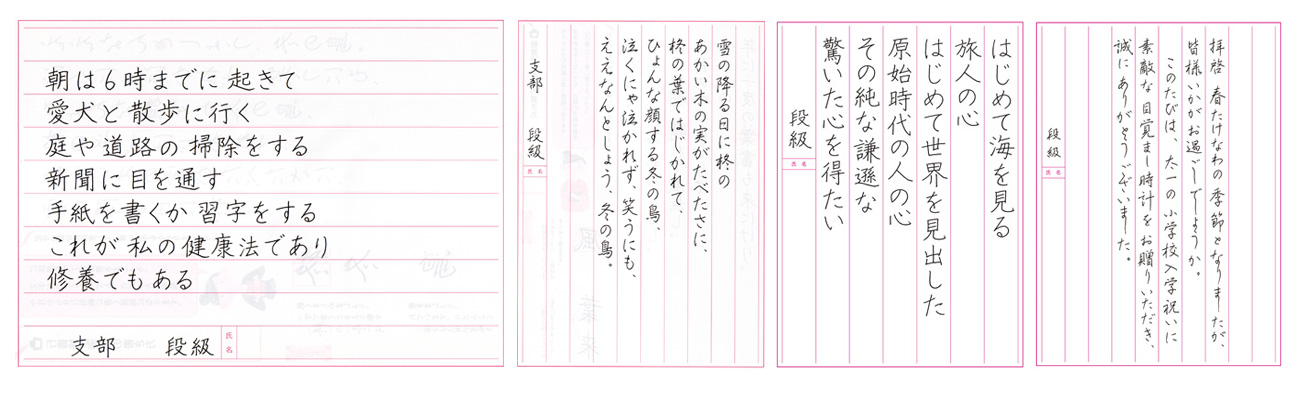 朝は6時までに起きて
愛犬と散歩に行く
庭や道路の掃除をする
新聞に目を通す
手紙を書くか習字をする
これが私の健康法であり
修養でもある
支部 段級 氏名
雪の降る日に柊の
あかい木の実がたべたさに、
柊の葉ではじかれて、
ひょんな顔する冬の鳥、
泣くにゃ泣かれず、笑うにも、
ええなんとしょう、冬の鳥。
支部 段級 氏名
はじめて海を見る
旅人の心
はじめて世界を見出した
原始時代の人の心
その純な謙遜な
驚いた心を得たい
段級 氏名
拝啓 春たけなわの季節となりましたが、
皆様いかがお過しでしょうか。
このたびは、太一の小学校入学祝いに
素敵な目覚まし時計をお贈りいただき、
誠にありがとうございました。
段級 氏名